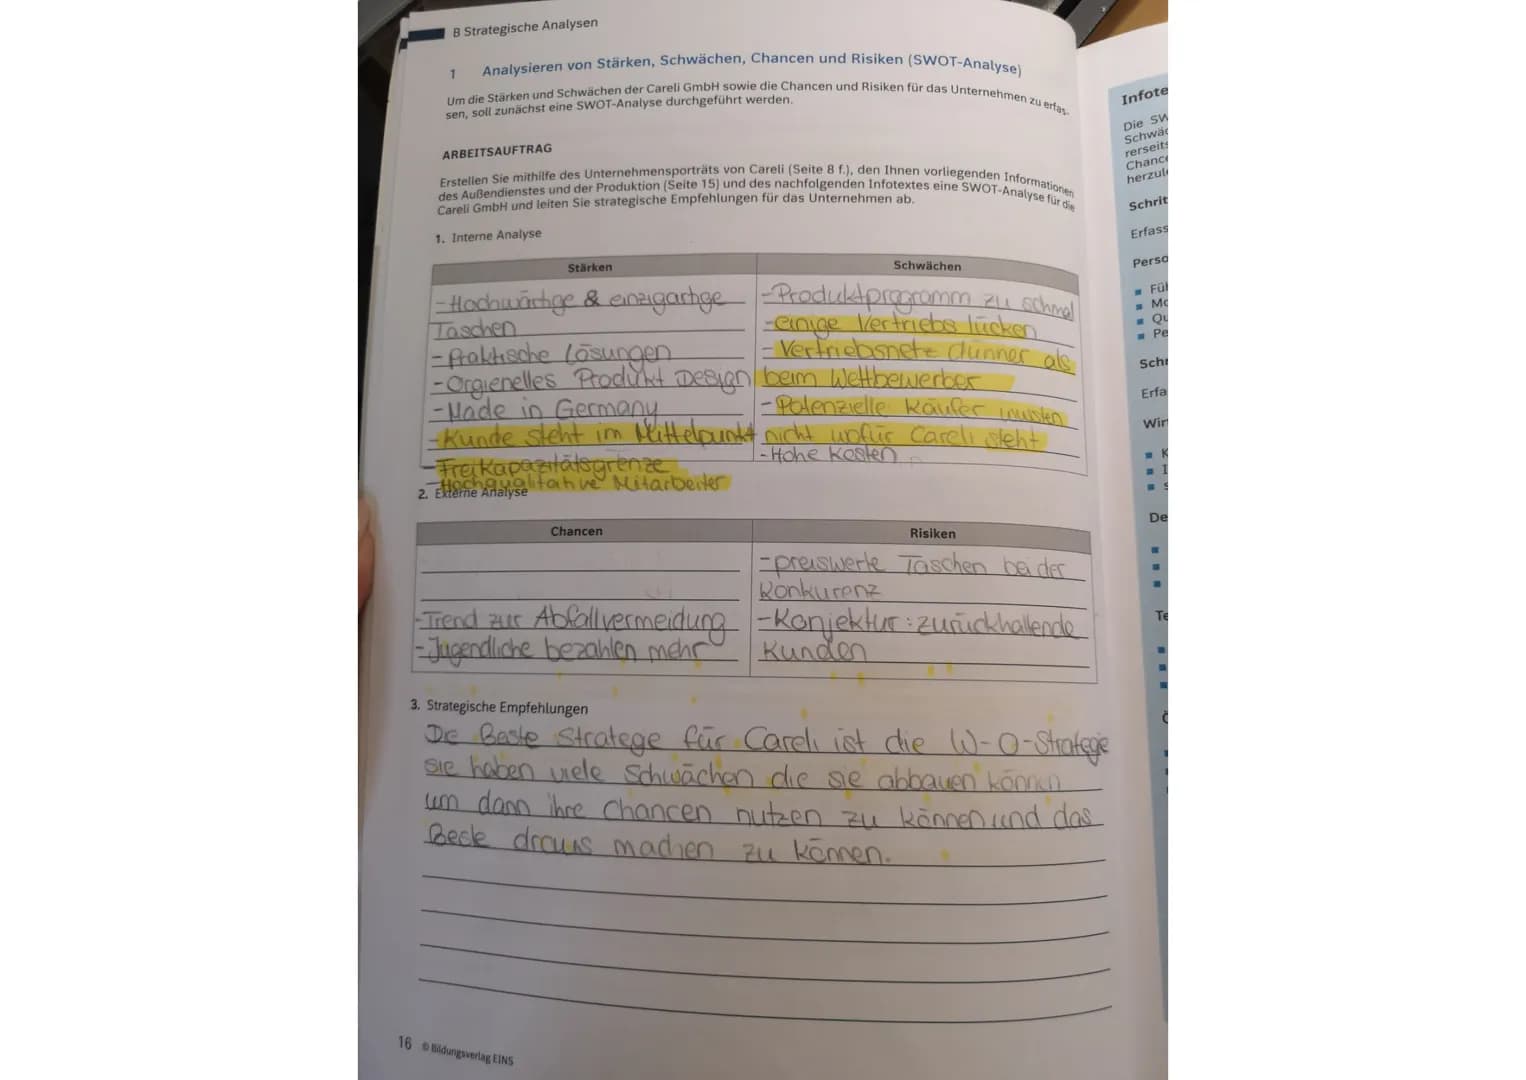 B Strategische Analysen
1 Analysieren von Stärken, Schwächen, Chancen und Risiken (SWOT-Analyse)
Um die Stärken und Schwächen der Careli GmbH sowie die Chancen und Risiken für das Unternehmen zu erfas-
sen, soll zunächst eine SWOT-Analyse durchgeführt werden.
ARBEITSAUFTRAG
Erstellen Sie mithilfe des Unternehmensporträts von Careli (Seite 8 f.), den Ihnen vorliegenden Informationen
des Außendienstes und der Produktion (Seite 15) und des nachfolgenden Infotextes eine SWOT-Analyse für die
Careli GmbH und leiten Sie strategische Empfehlungen für das Unternehmen ab.
1. Interne Analyse
Stärken
-Hochwärtige & einzigartige
Taschen
-Praktische Lösungen
-Orgienelles Produkt Design
-Made in Germany
-Kunde steht im Mittelpunkt
-Freikapazitätsgrenze
-Hochqualitative Mitarbeiter
Schwächen
-Produktprogramm zu schmal
-einige Vertriebs lücken
-Vertriebsnetz dünner als
beim Wettbewerber
-Potenzielle Käufer wussten
nicht wofür Careli steht
-Hohe Kosten
2. Externe Analyse
Chancen
-Trend zur Abfallvermeidung
-Jugendliche bezahlen mehr
Risiken
-preiswerte Taschen bei der
Konkurenz
-Konjektur: zurückhaltende
Kunden
3. Strategische Empfehlungen
Die Beste Stratege für Careli ist die W-O-Stratege
sie haben viele Schwächen die sie abbauen können
um dann ihre Chancen nutzen zu können und das
Beste draus machen zu können.
16 © Bildungsverlag EINS
Infote
Die SW
Schwäc
rerseits
Chance
herzule
Schrit
Erfass
Perso
Füh
Mo
Qu
Pe
Schr
Erfa
Wirt
K
I
S
De
Te